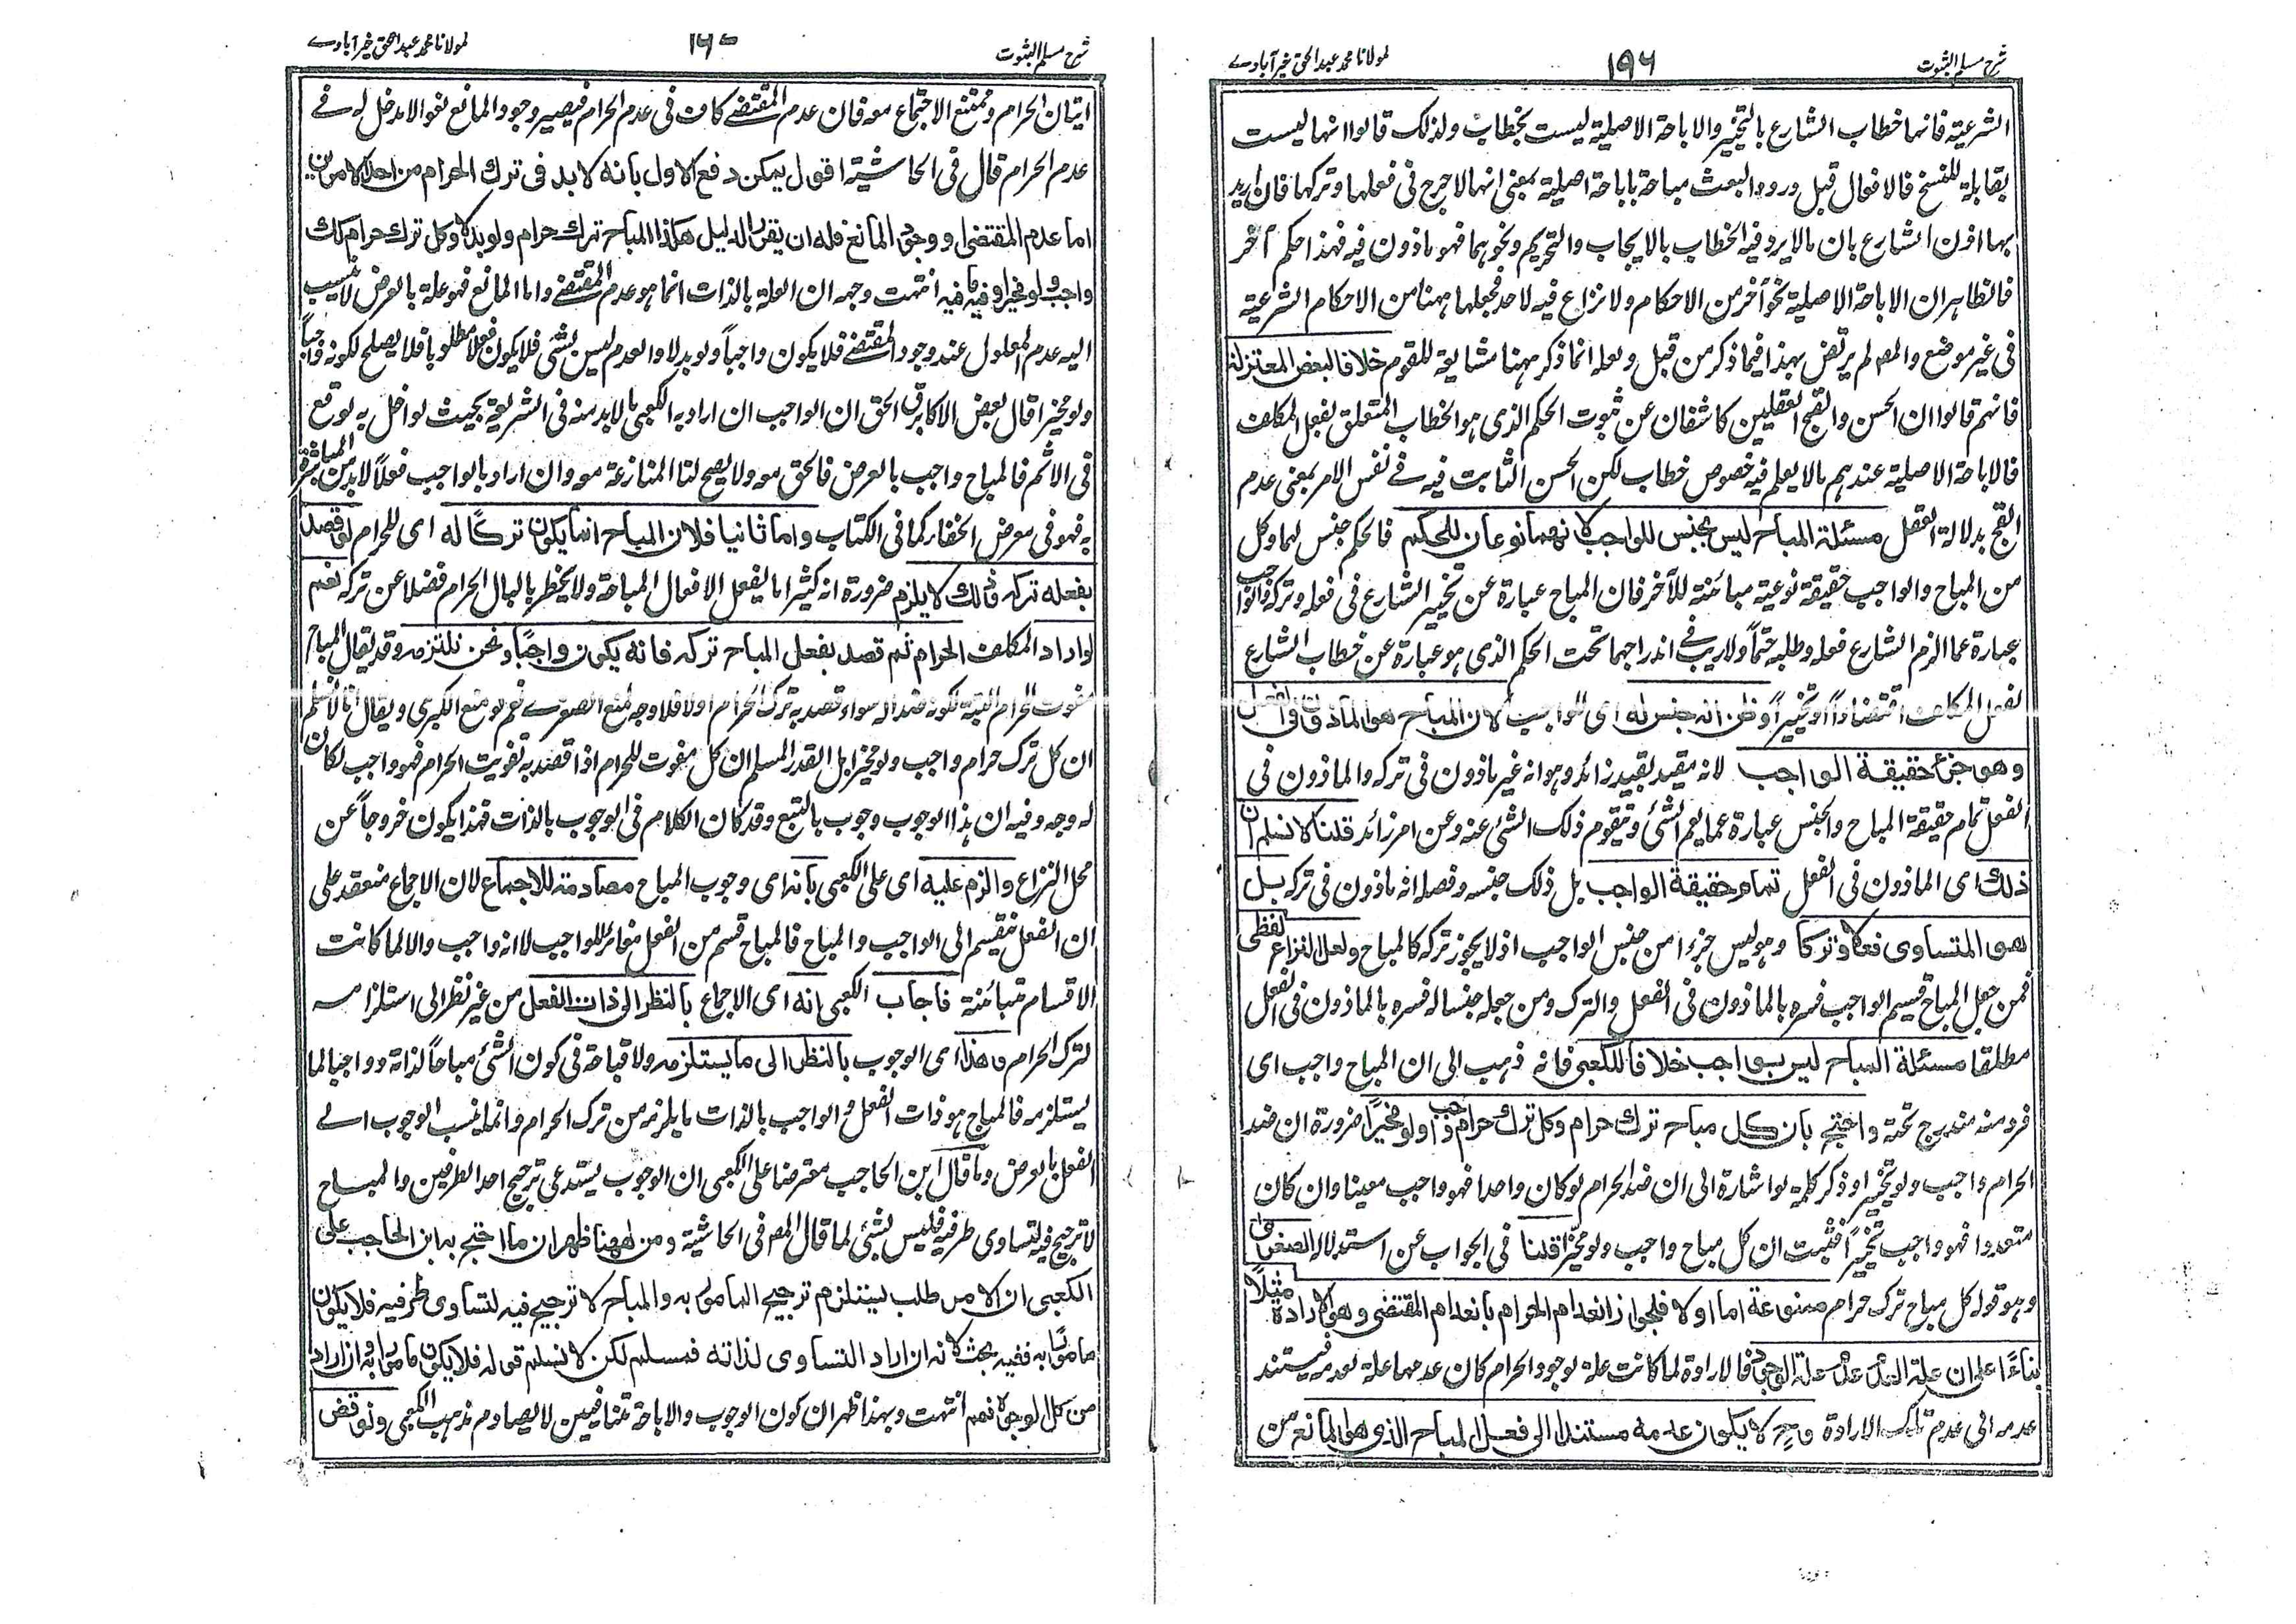 شرح مسلم الثبوت ١٩٦ لمولانا محمد عبد الحق خيرآبادے
الشرعية فانها خطاب الشارع بالتخيير والاباحة الاصلية ليست بخطاب ولذلك قالوا انها ليست
بقابلة للنسخ فالافعال قبل ورود البعث مباحة باباحة اصلية بمعنى انها لاحرج فى فعلها وتركها فان اريد
بها اذن الشارع بان مالايرد فيه الخطاب بالايجاب والتحريم ونحوهما فهو ماذون فيه فهذا حكم آخر
فالظاهر ان الاباحة الاصلية نحو آخر من الاحكام ولا نزاع فيه لاحد فجعلها ههنا من الاحكام الشرعية
فى غير موضع والمص لم يرتض بهذا فيما ذكر من قبل ولعله انما ذكر ههنا مشايعة للقوم خلافا لبعض المعتزلة
فانهم قالوا ان الحسن والقبح العقليين كاشفان عن ثبوت الحكم الذى هو الخطاب المتعلق بفعل المكلف
فالاباحة الاصلية عندهم مالا يعلم فيه خصوص خطاب لكن الحسن الثابت فيه فے نفس الامر بمعنى عدم
القبح بدلالة العقل مسئلة المباح ليس بجنس للواجب لانهما نوعان للحكم فالحكم جنس لهما وكل
من المباح والواجب حقيقة نوعية مبائنة للآخر فان المباح عبارة عن تخيير الشارع فى فعله وتركه والواجب
عبارة عما الزم الشارع فعله وطلبه حتماً ولاريب فے اندراجهما تحت الحكم الذى هو عبارة عن خطاب الشارع
لفعل المكلف اقتضاءاً او تخييراً وظن انه جنس له اى للواجب لان المباح هو الماذون فى الفعل
وهو جزء حقيقة الواجب لانه مقيد بقيد زائد وهو انه غير ماذون فى تركه والماذون فى
الفعل تمام حقيقة المباح والجنس عبارة عما يعم الشئ ويتقوم ذلك الشئ عنه وعن امر زائد قلنا لا نسلم ان
ذلك اى الماذون فى الفعل تمام حقيقة الواجب بل ذلك جنسه وفصله انه ماذون فى تركه بل
هو المتساوى فعلا وتركا وهو ليس جزءا من جنس الواجب اذ لا يجوز تركه كالمباح ولعل النزاع لفظى
فمن جعل المباح قسيم الواجب فسره بالماذون فى الفعل والترك ومن جعله جنسا له فسره بالماذون فى الفعل
مطلقا مسئلة المباح ليس بواجب خلافا للكعبى فانه ذهب الى ان المباح واجب اى
فرد منه مندرج تحته واحتج بان كل مباح ترك حرام وكل ترك حرام واجب ولو مخيراً ضرورة ان ضد
الحرام واجب ولو تخييرا وذكر كلمة لو اشارة الى ان ضد الحرام لو كان واحدا فهو واجب معينا وان كان
متعددا فهو واجب تخييراً فثبت ان كل مباح واجب ولو مخيّرا قلنا فى الجواب عن استدلاله الصغرى
وهو قوله كل مباح ترك حرام ممنوعة اما اولا فلجواز انعدام الحرام بانعدام المقتضى وهو الارادة مثلاً
بناءً اعلى ان علة العدم عدم علة الوجود فالارادة لما كانت علة لوجود الحرام كان عدمها علة لعدمه فيستند
عدمه الى عدم تلك الارادة وح لا يكون عدمه مستندا الى فعل المباح الذى هو المانع من
شرح مسلم الثبوت لمولانا محمد عبد الحق خيرآبادے
اتيان الحرام وممتنع الاجتماع معه فان عدم المقتضے كاف فى عدم الحرام فيصير وجود المانع لغوا لادخل له فے
عدم الحرام قال فى الحاشية اقول يمكن دفع الاول بانه لابد فى ترك الحرام من احد الامرين
اما عدم المقتضى او وجود المانع فله ان يقرر الدليل هكذا المباح ترك حرام ولو بدلا وكل ترك حرام كك
واجب ولو مخيرا وفيه مافيه انتهت وجهه ان العلة بالذات انما هو عدم المقتضے واما المانع فهو علة بالعرض لاينسب
اليه عدم المعلول عند وجود المقتضے فلا يكون واجباً ولو بدلا والعدم ليس بشئ فلا يكون فعلا مطلوبا فلا يصلح لكونه واجباً
ولو مخيرا قال بعض الاكابر الحق ان الواجب ان اراد به الكعبى مالابد منه فى الشريعة بحيث لو اخل به لوقع
فى الاثم فالمباح واجب بالعرض فالحق معه ولا يصح لنا المنازعة معه وان اراد بالواجب فعلاً لابد من المباشرة
به فهو فى معرض الخفاء كما فى الكتاب واما ثانيا فلان المباح انما يكون تركًا له اى للحرام لو قصد
بفعله تركه وذلك لايلزم ضرورة انه كثيرا ما يفعل الافعال المباحة ولا يخطر بالبال الحرام فضلا عن تركه نعم
لو اراد المكلف الحرام ثم قصد بفعل المباح تركه فانه يكون واجبًا ونحن نلتزمه وقد يقال المباح
مفوت للحرام البتة لكونه ضدا له سواء قصد به ترك الحرام اولا فلا وجه لمنع الصغرے نعم لو منع الكبرى ويقال انا لانسلم
ان كل ترك حرام واجب ولو مخيرا بل القدر المسلم ان كل مفوت للحرام اذا قصد به تفويت الحرام فهو واجب لكان
له وجه وفيه ان هذا الوجوب وجوب بالتبع وقد كان الكلام فى الوجوب بالذات فهذا يكون خروجاً عن
محل النزاع والزم عليه اى على الكعبى بانه اى وجوب المباح مصادمة للاجماع لان الاجماع منعقد على
ان الفعل ينقسم الى الواجب والمباح فالمباح قسم من الفعل مغائر للواجب لا انه واجب والا لما كانت
الاقسام متبائنة فاجاب الكعبى انه اى الاجماع بالنظر الى ذات الفعل من غير نظر الى استلزامه
لترك الحرام وهذا اى الوجوب بالنظر الى ما يستلزمه ولا قباحة فى كون الشئ مباحاً لذاته وواجبا لما
يستلزمه فالمباح هو ذات الفعل والواجب بالذات ما يلزمه من ترك الحرام وانما ينسب الوجوب الے
الفعل بالعرض وما قال ابن الحاجب معترضا على الكعبى ان الوجوب يستدعى ترجيح احد الطرفين والمباح
لاترجيح فيه لتساوى طرفيه فليس بشئ لما قال المص فى الحاشية ومن ههنا ظهر ان ما احتج به ابن الحاجب على
الكعبى ان الامر طلب يستلزم ترجيح المامور به والمباح لا ترجيح فيه لتساوى طرفيه فلا يكون
مامورًا به ففيه بحث لانه ان اراد التساوى لذاته فمسلم لكن لا نسلم قوله فلا يكون مامورا به وان اراد
من كل الوجوه فمم انتهت وبهذا ظهر ان كون الوجوب والاباحة متنافيين لايصادم مذهب الكعبى ونوقض